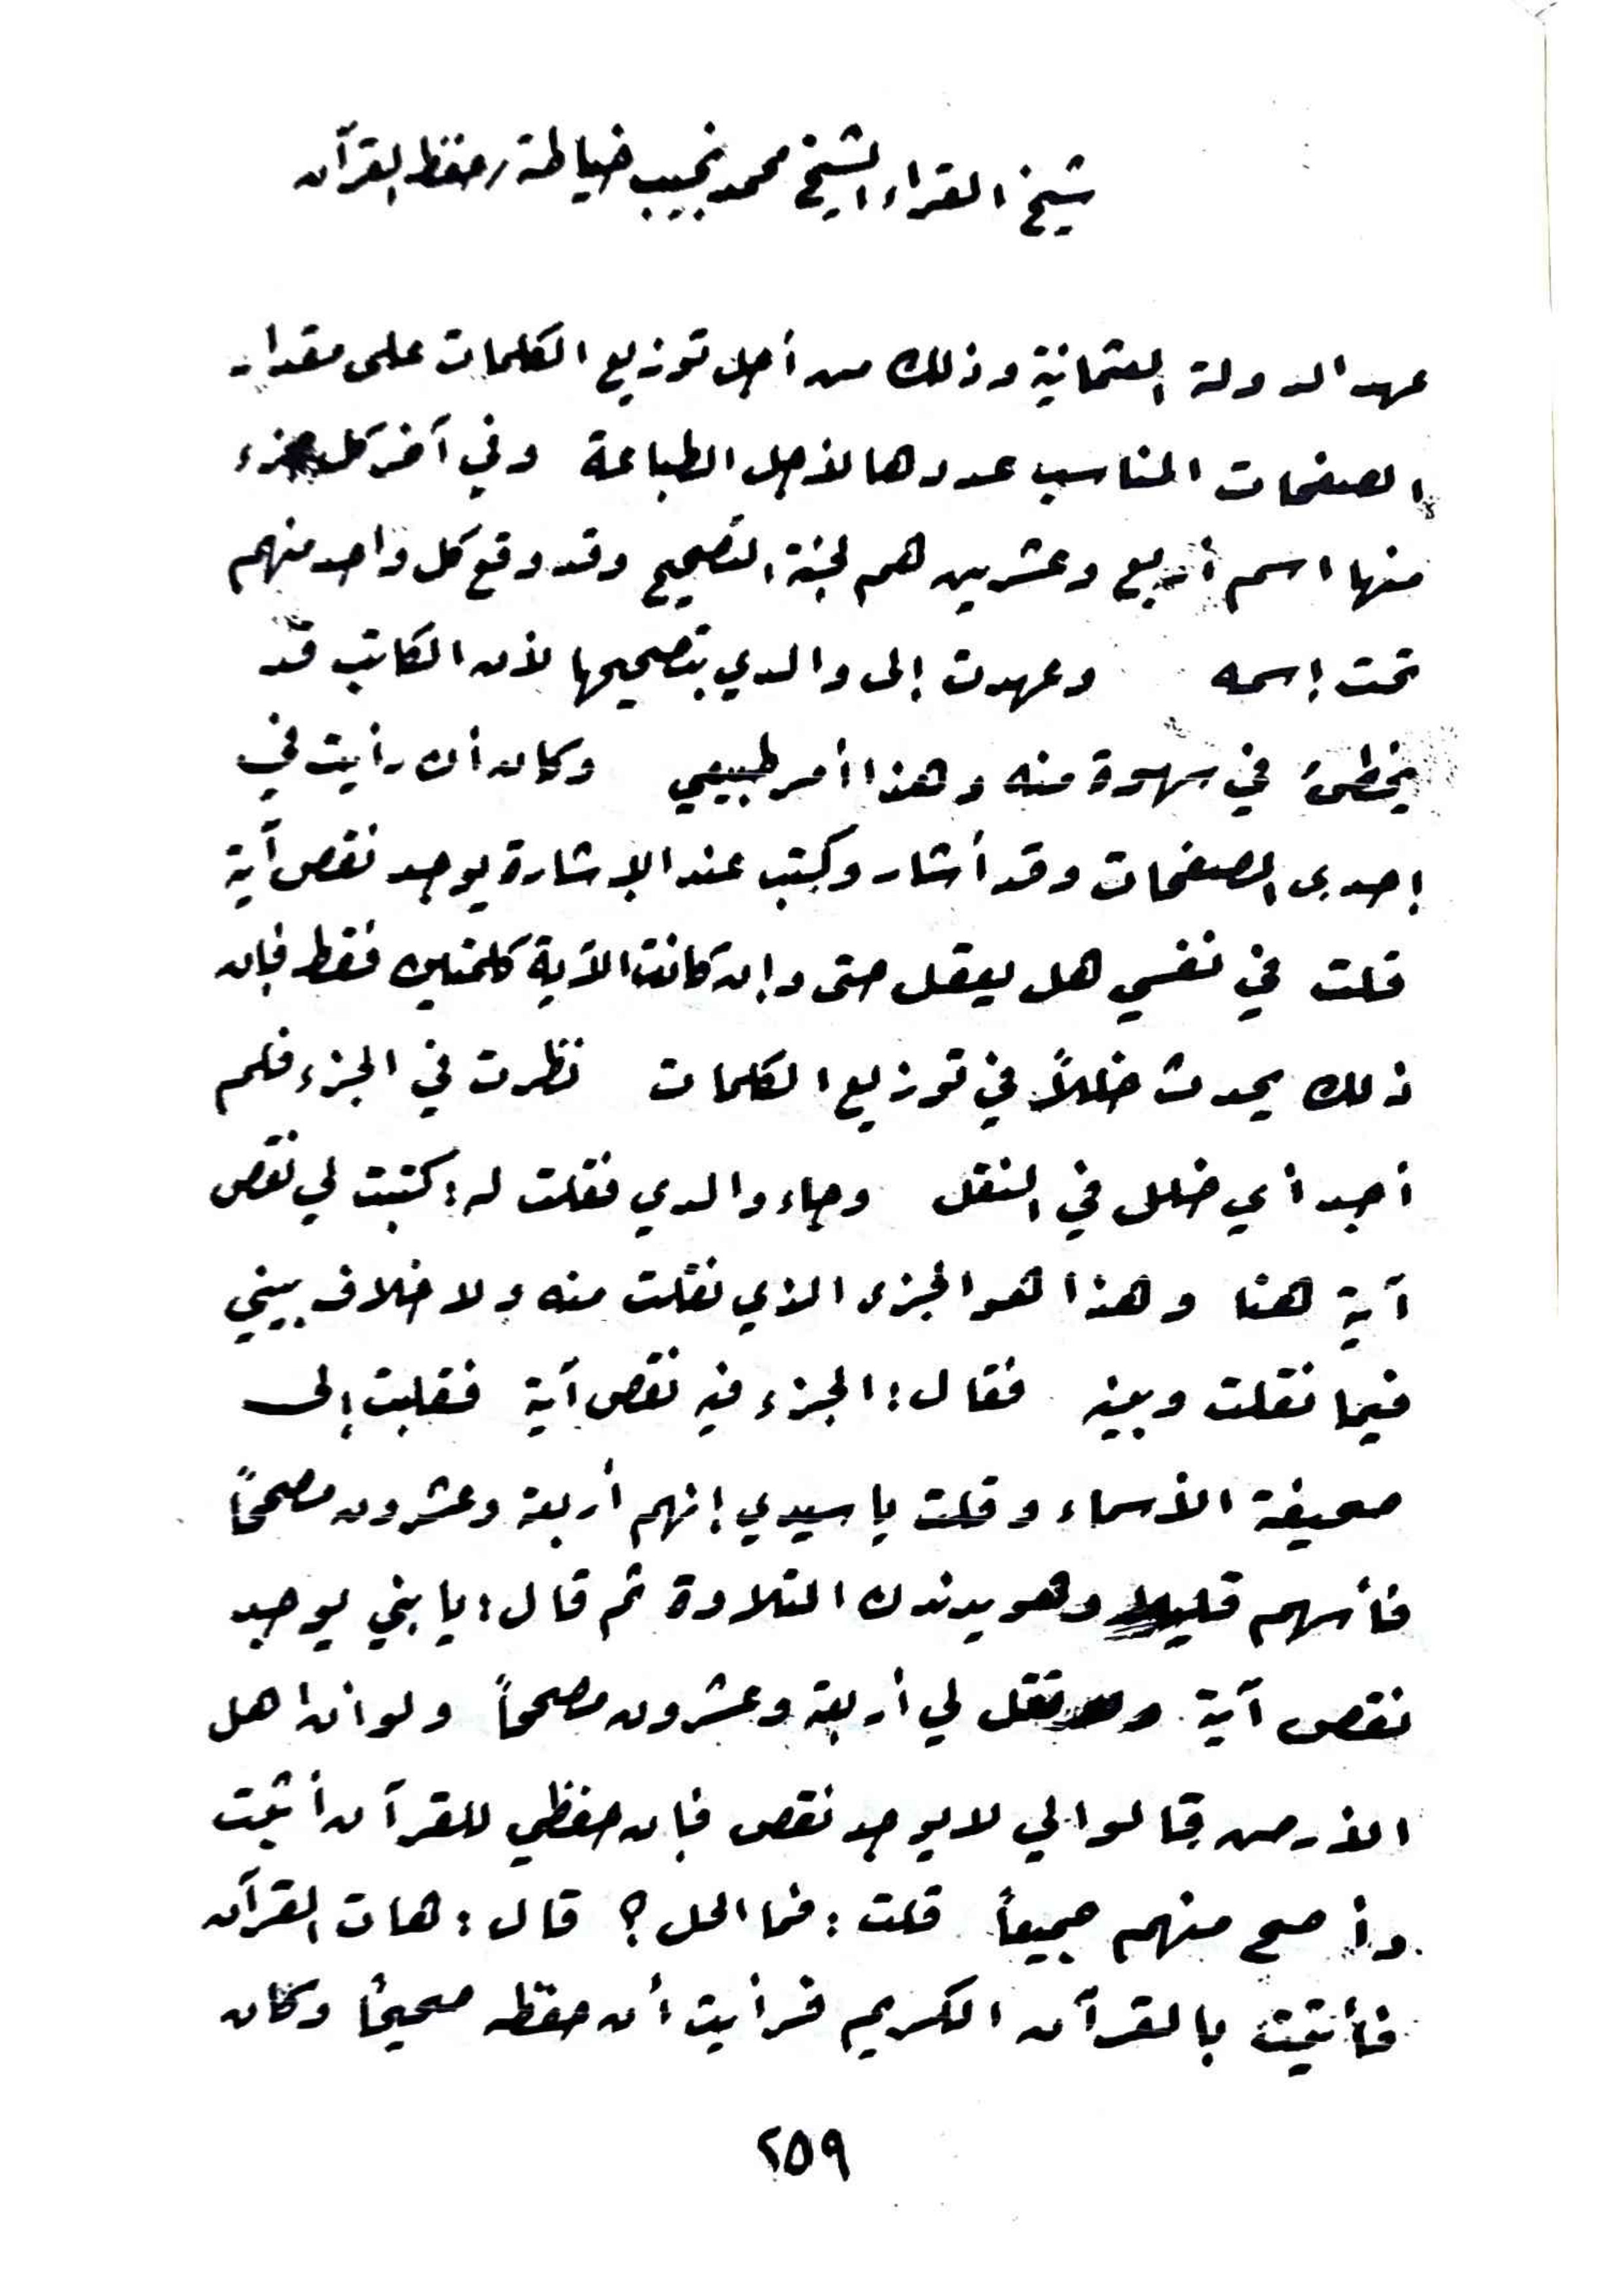 شيخ القراء الشيخ محمد نجيب خياطة / حفظ القرآن
عهد الدولة العثمانية وذلك من أجل توزيع الكلمات على مقدار
الصفحات المناسب عددها لأجل الطباعة وفي آخر كل جزء
منها اسم أربع وعشرين هم لجنة التصحيح وقد وقع كل واحد منهم
تحت إسمه وعهدت إلى والدي بتصحيحها لأن الكاتب قد
يخطئ في سهوة منه وهذا أمر طبيعي وكان أن رأيت في
إحدى الصفحات وقد أشار وكتب عند الإشارة يوجد نقص آية
قلت في نفسي هل يعقل حتى وإن كانت الآية كلمتين فقط فإن
ذلك يحدث خللاً في توزيع الكلمات نظرت في الجزء فلم
أجد أي خلل في النقل وجاء والدي فقلت له : كتبت لي نقص
آية هنا وهذا هو الجزء الذي نقلت منه ولا خلاف بيني
فيما نقلت وبينه فقال : الجزء فيه نقص آية فقلبت إلى
صحيفة الأسماء وقلت يا سيدي إنهم أربعة وعشرون مصححاً
فأسهم قليلا وهو يدندن التلاوة ثم قال : يا بني يوجد
نقص آية تقل لي أربعة وعشرون مصححاً ولو أن اهل
الأرض قالوا لي لا يوجد نقص فإن حفظي للقرآن أثبت
وأصح منهم جميعاً قلت : فما الحل ؟ قال : هات القرآن
فأتيت بالقرآن الكريم فرأيت أن حفظه صحيحاً وكان
٢٥٩